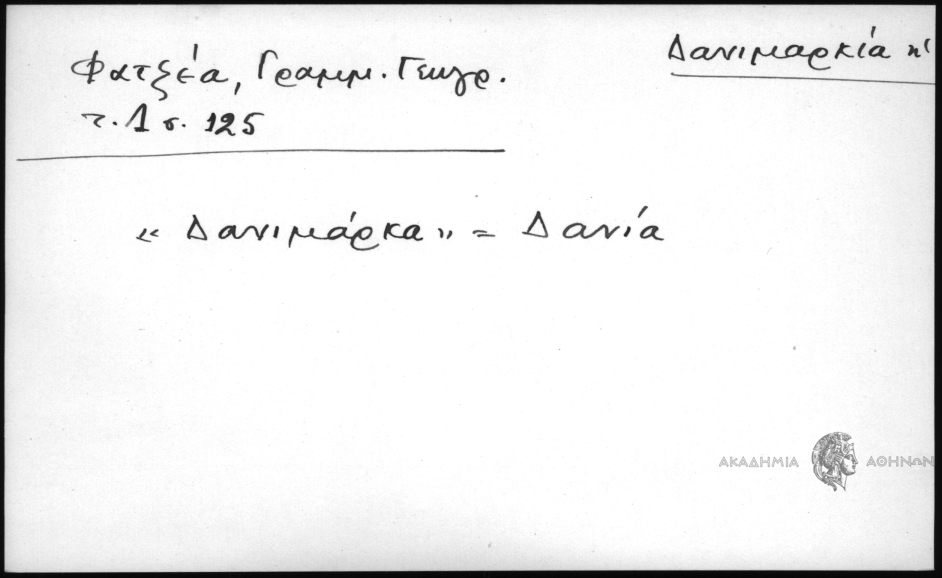 Δανιμαρκία η'
Φατζέα, Γραμμ. Γεωγρ.
τ. 1 σ. 125
« Δανιμάρκα » = Δανία
ΑΚΑΔΗΜΙΑ ΑΘΗΝΩΝ